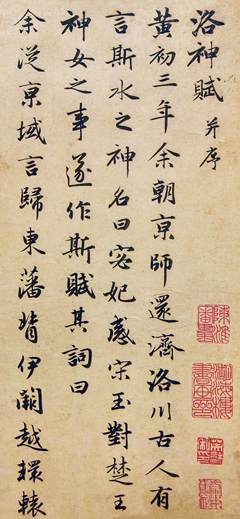 洛神賦 并序
黃初三年余朝京師還濟洛川古人有
言斯水之神名曰宓妃感宋玉對楚王
神女之事遂作斯賦其詞曰
余從京域言歸東藩背伊闕越轘轅